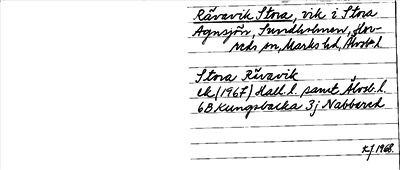 Råvavik Stora, vik i Stora
Agnsjön, Sundholmen, Hov-
neds sn, Marks hd, Älvsb.l.
Stora Råvavik
ek (1967) Hall.l. samt Älvsb.l.
6B Kungsbacka 3j Nabbared
KJ 1968.